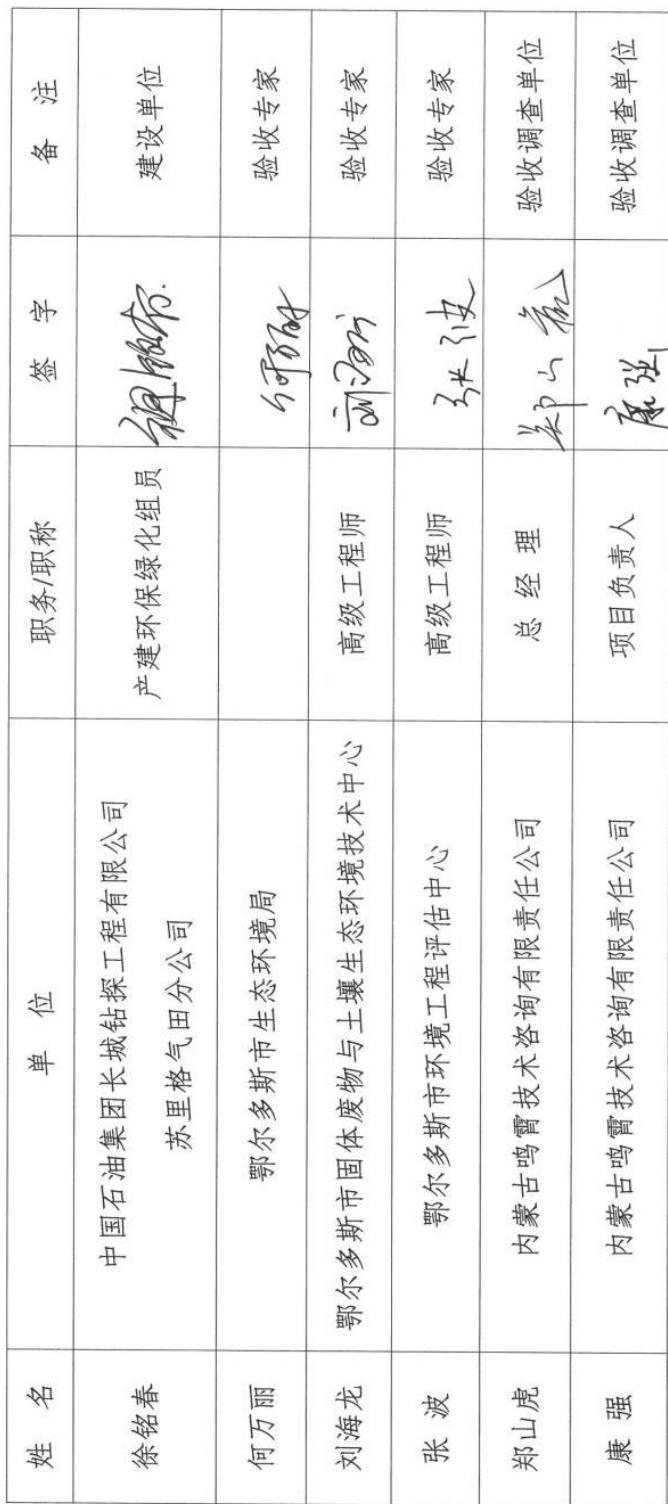 姓 名 单 位 职务/职称 签 字 备 注
徐铭春 中国石油集团长城钻探工程有限公司 产建环保绿化组员 建设单位
苏里格气田分公司
何万丽 鄂尔多斯市生态环境局 验收专家
刘海龙 鄂尔多斯市固体废物与土壤生态环境技术中心 高级工程师 验收专家
张 波 鄂尔多斯市环境工程评估中心 高级工程师 张波 验收专家
郑山虎 内蒙古鸣霄技术咨询有限责任公司 总 经 理 郑山虎 验收调查单位
康 强 内蒙古鸣霄技术咨询有限责任公司 项目负责人 康强 验收调查单位